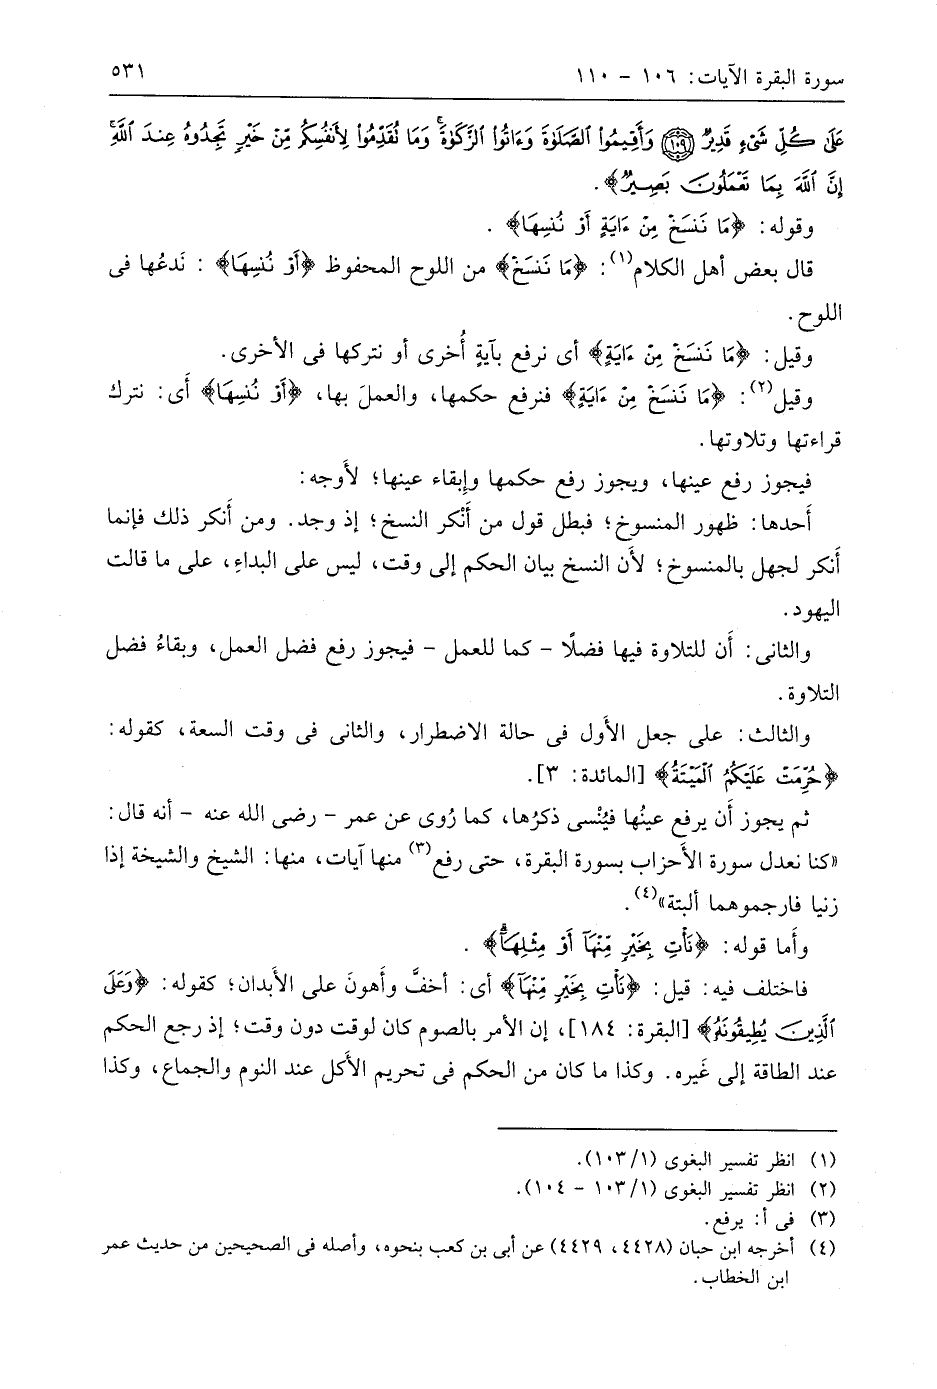 سورة البقرة الآيات: ١٠٦ - ١١٠ ٥٣١
عَلَىٰ كُلِّ شَىْءٍ قَدِيرٌ ﴿١٠٩﴾ وَأَقِيمُوا۟ ٱلصَّلَوٰةَ وَءَاتُوا۟ ٱلزَّكَوٰةَ ۚ وَمَا نُقَدِّمُوا۟ لِأَنفُسِكُم مِّنْ خَيْرٍ تَجِدُوهُ عِندَ ٱللَّهِ ۗ
إِنَّ ٱللَّهَ بِمَا تَعْمَلُونَ بَصِيرٌ﴾.
وقوله: ﴿مَا نَنسَخْ مِنْ ءَايَةٍ أَوْ نُنسِهَا﴾ .
قال بعض أهل الكلام(١): ﴿مَا نَنسَخْ﴾ من اللوح المحفوظ ﴿أَوْ نُنسِهَا﴾ : نَدعُها فى
اللوح.
وقيل: ﴿مَا نَنسَخْ مِنْ ءَايَةٍ﴾ أى نرفع بآيةٍ أُخرى أو نتركها فى الأخرى.
وقيل(٢): ﴿مَا نَنسَخْ مِنْ ءَايَةٍ﴾ فنرفع حكمها، والعملَ بها، ﴿أَوْ نُنسِهَا﴾ أى: نترك
قراءتها وتلاوتها.
فيجوز رفع عينها، ويجوز رفع حكمها وإبقاء عينها؛ لأَوجه:
أَحدها: ظهور المنسوخ؛ فبطل قول من أَنْكر النسخ؛ إذ وجد. ومن أَنكر ذلك فإنما
أَنكر لجهل بالمنسوخ؛ لأَن النسخ بيان الحكم إلى وقت، ليس على البداءِ، على ما قالت
اليهود.
والثانى: أَن للتلاوة فيها فضلًا - كما للعمل - فيجوز رفع فضل العمل، وبقاءُ فضل
التلاوة.
والثالث: على جعل الأَول فى حالة الاضطرار، والثانى فى وقت السعة، كقوله:
﴿حُرِّمَتْ عَلَيْكُمُ ٱلْمَيْتَةُ﴾ [المائدة: ٣].
ثم يجوز أَن يرفع عينُها فيُنْسى ذكرُها، كما رُوى عن عمر - رضى الله عنه - أنه قال:
«كنا نعدل سورة الأَحزاب بسورة البقرة، حتى رفع(٣) منها آيات، منها: الشيخ والشيخة إذا
زنيا فارجموهما ألبتة»(٤).
وأَما قوله: ﴿نَأْتِ بِخَيْرٍ مِّنْهَآ أَوْ مِثْلِهَآ ۗ﴾ .
فاختلف فيه: قيل: ﴿نَأْتِ بِخَيْرٍ مِّنْهَآ﴾ أى: أخفَّ وأَهونَ على الأَبدان؛ كقوله: ﴿وَعَلَى
ٱلَّذِينَ يُطِيقُونَهُۥ﴾ [البقرة: ١٨٤]، إن الأمر بالصوم كان لوقت دون وقت؛ إذ رجع الحكم
عند الطاقة إلى غَيره. وكذا ما كان من الحكم فى تحريم الأَكل عند النوم والجماع، وكذا
(١) انظر تفسير البغوى (١/ ١٠٣).
(٢) انظر تفسير البغوى (١/ ١٠٣ - ١٠٤).
(٣) فى أ: يرفع.
(٤) أخرجه ابن حبان (٤٤٢٨، ٤٤٢٩) عن أبى بن كعب بنحوه، وأصله فى الصحيحين من حديث عمر
ابن الخطاب.